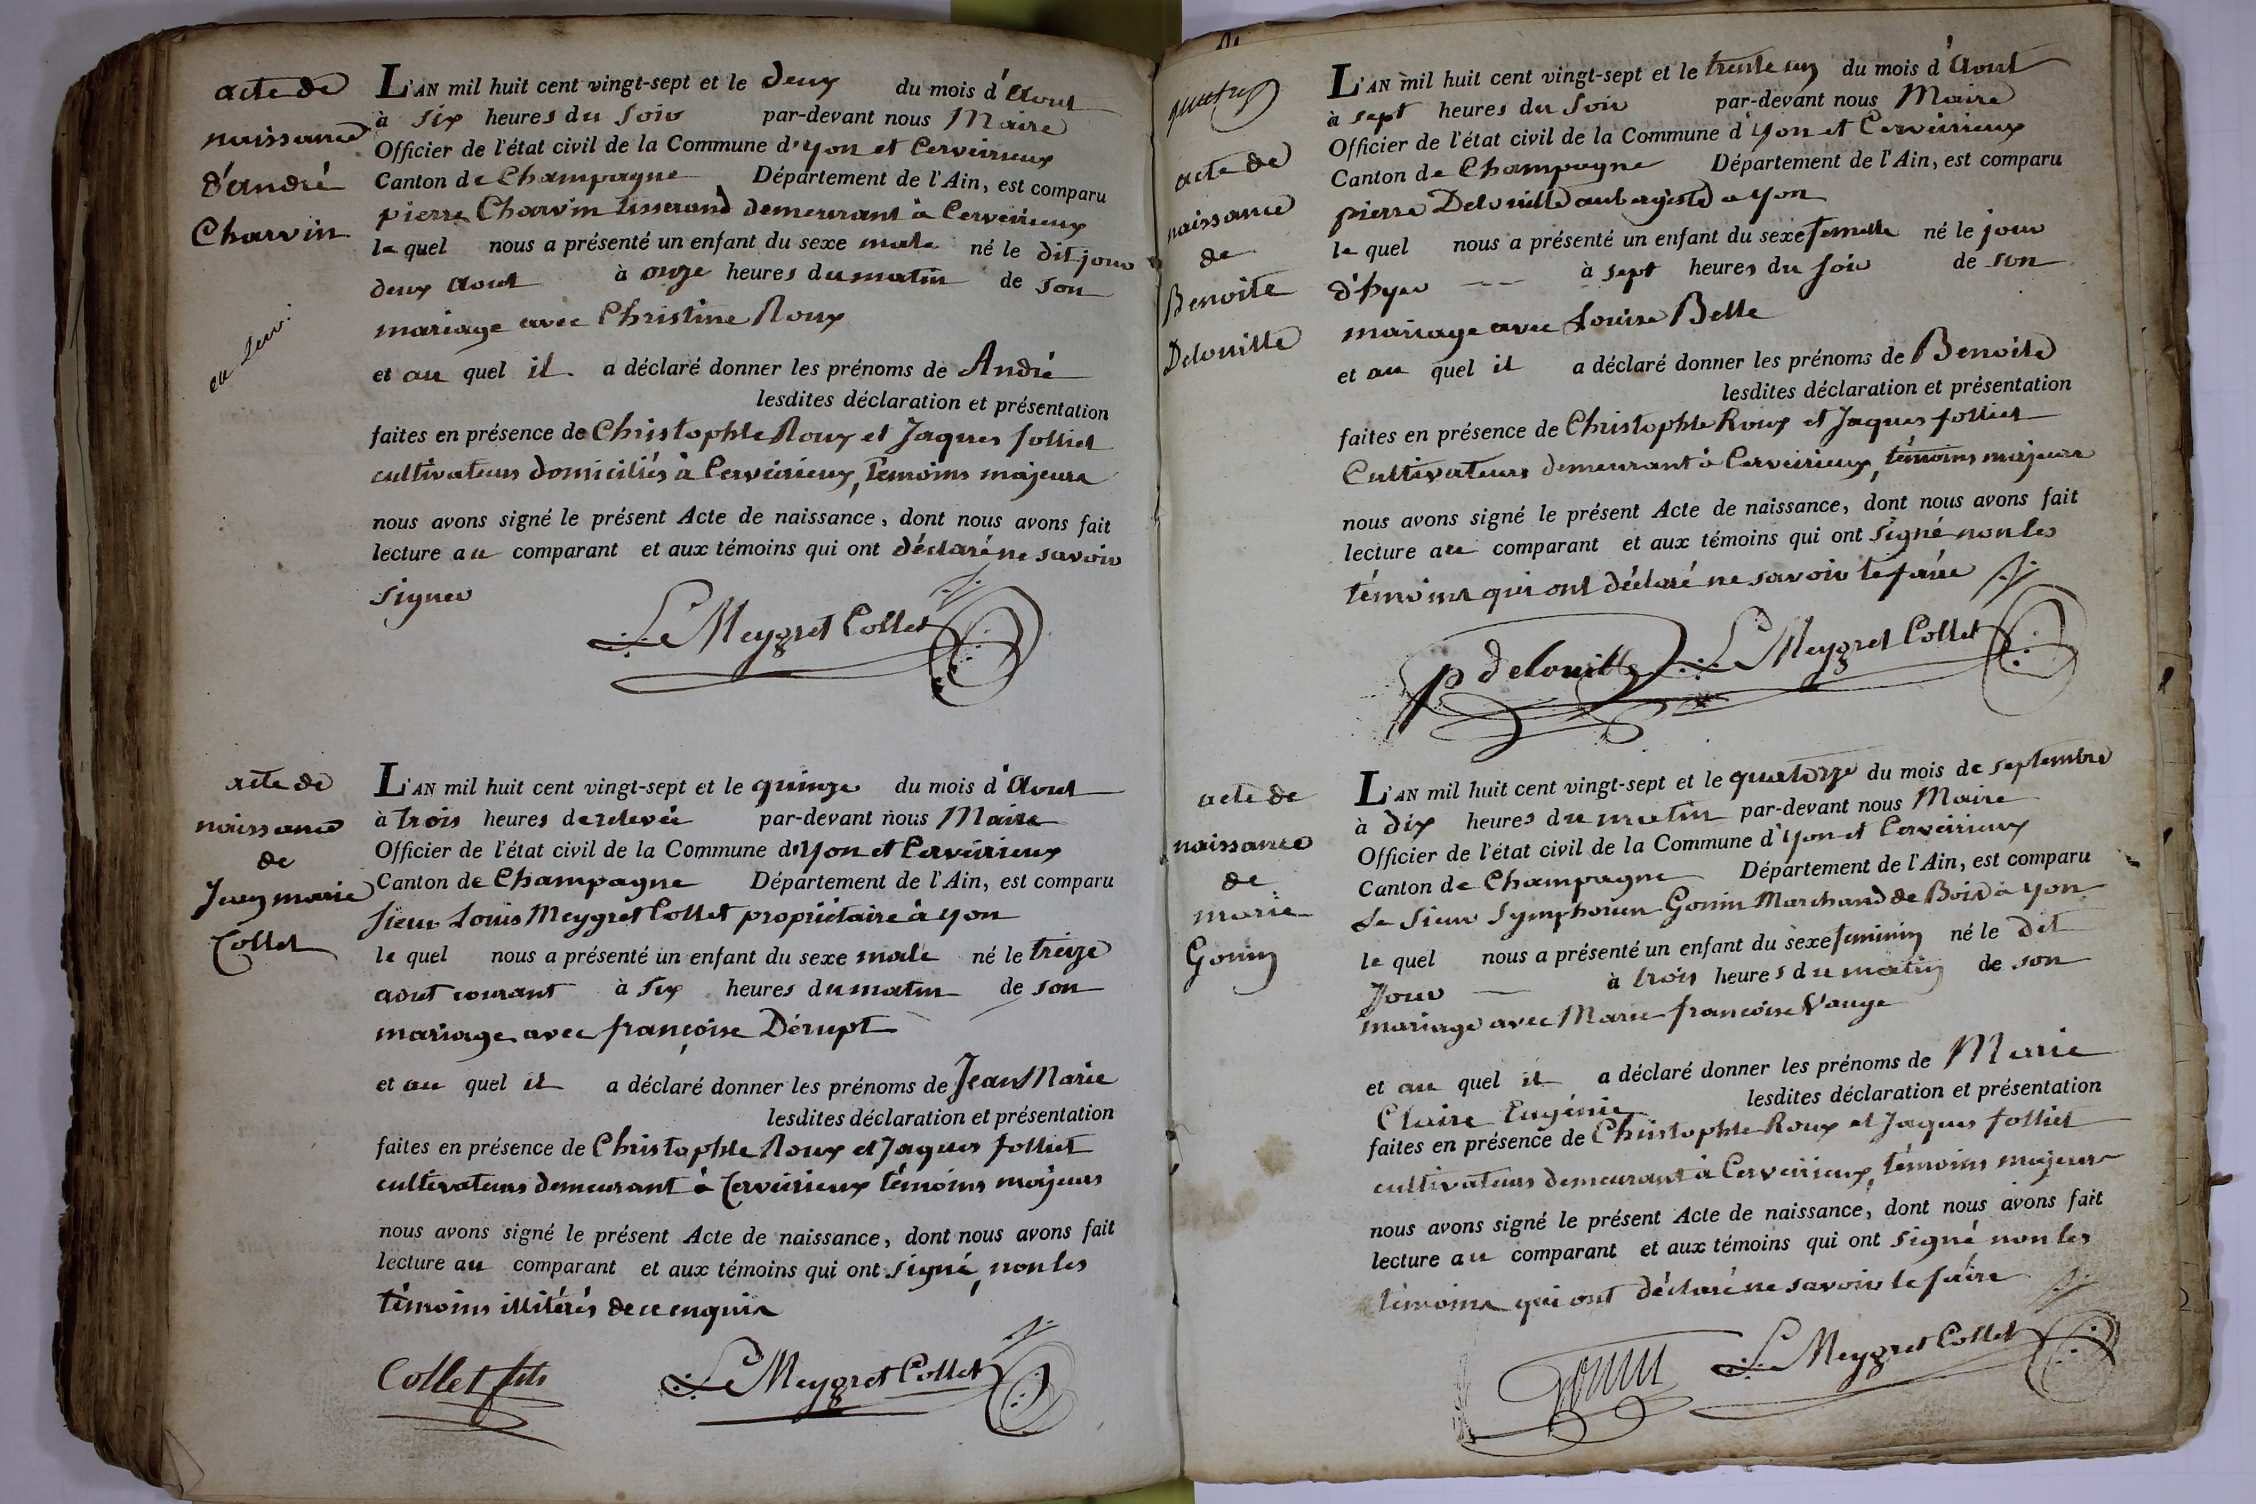 acte de
naissance
d'andré
Charvin
L'AN mil huit cent vingt-sept et le deux du mois d'Aout
à six heures du soir par-devant nous Maire
Officier de l'état civil de la Commune d'yon et Cerveirieux
Canton de Champagne Département de l'Ain, est comparu
pierre Charvin tisserand demeurant à Cerveirieux
le quel nous a présenté un enfant du sexe male né le dit jour
deux Aout à onze heures du matin de son
mariage avec Christine Roux
et au quel il a déclaré donner les prénoms de André
lesdites déclaration et présentation
faites en présence de Christophle Roux et Jaques follict
cultivateurs domiciliés à Cerveirieux, témoins majeurs
nous avons signé le présent Acte de naissance, dont nous avons fait
lecture au comparant et aux témoins qui ont déclaré ne savoir
signer
Le Meygret Collet
acte de
naissance
de
Jean marie
Collet
L'AN mil huit cent vingt-sept et le quinze du mois d'Aout
à trois heures de relevée par-devant nous Maire
Officier de l'état civil de la Commune d'yon et Cerveirieux
Canton de Champagne Département de l'Ain, est comparu
sieur Louis Meygret Collet propriétaire à yon
le quel nous a présenté un enfant du sexe male né le treize
aout courant à six heures du matin de son
mariage avec françoise Dérupt
et au quel il a déclaré donner les prénoms de Jean Marie
lesdites déclaration et présentation
faites en présence de Christophle Roux et Jaques follict
cultivateurs demeurant à Cerveirieux témoins majeurs
nous avons signé le présent Acte de naissance, dont nous avons fait
lecture au comparant et aux témoins qui ont signé, non les
témoins illitérés de ce enquis
Collet fils Le Meygret Collet
acte de
naissance
de
Benoite
Delouille
L'AN mil huit cent vingt-sept et le trente un du mois d'Aout
à sept heures du soir par-devant nous Maire
Officier de l'état civil de la Commune d'yon et Cerveirieux
Canton de Champagne Département de l'Ain, est comparu
pierre Delouille aubergiste a yon
le quel nous a présenté un enfant du sexe femelle né le jour
d'hyer à sept heures du soir de son
mariage avec Louise Belle
et au quel il a déclaré donner les prénoms de Benoite
lesdites déclaration et présentation
faites en présence de Christophle Roux et Jaques follict
Cultivateurs demeurant à Cerveirieux, témoins majeurs
nous avons signé le présent Acte de naissance, dont nous avons fait
lecture au comparant et aux témoins qui ont signé non les
témoins qui ont déclaré ne savoir le faire
P delouille Le Meygret Collet
acte de
naissance
de
marie
Gonin
L'AN mil huit cent vingt-sept et le quatorze du mois de septembre
à dix heures du matin par-devant nous Maire
Officier de l'état civil de la Commune d'yon et Cerveirieux
Canton de Champagne Département de l'Ain, est comparu
Le sieur Symphorien Gonin Marchand de Bois à yon
le quel nous a présenté un enfant du sexe feminin né le dit
Jour à trois heures du matin de son
mariage avec Marie françoise Vauge
et au quel il a déclaré donner les prénoms de Marie
Claire Eugénie lesdites déclaration et présentation
faites en présence de Christophle Roux et Jaques follict
cultivateurs demeurant à Cerveirieux, témoins majeurs
nous avons signé le présent Acte de naissance, dont nous avons fait
lecture au comparant et aux témoins qui ont signé non les
témoins qui ont déclaré ne savoir le faire
Gonin Le Meygret Collet